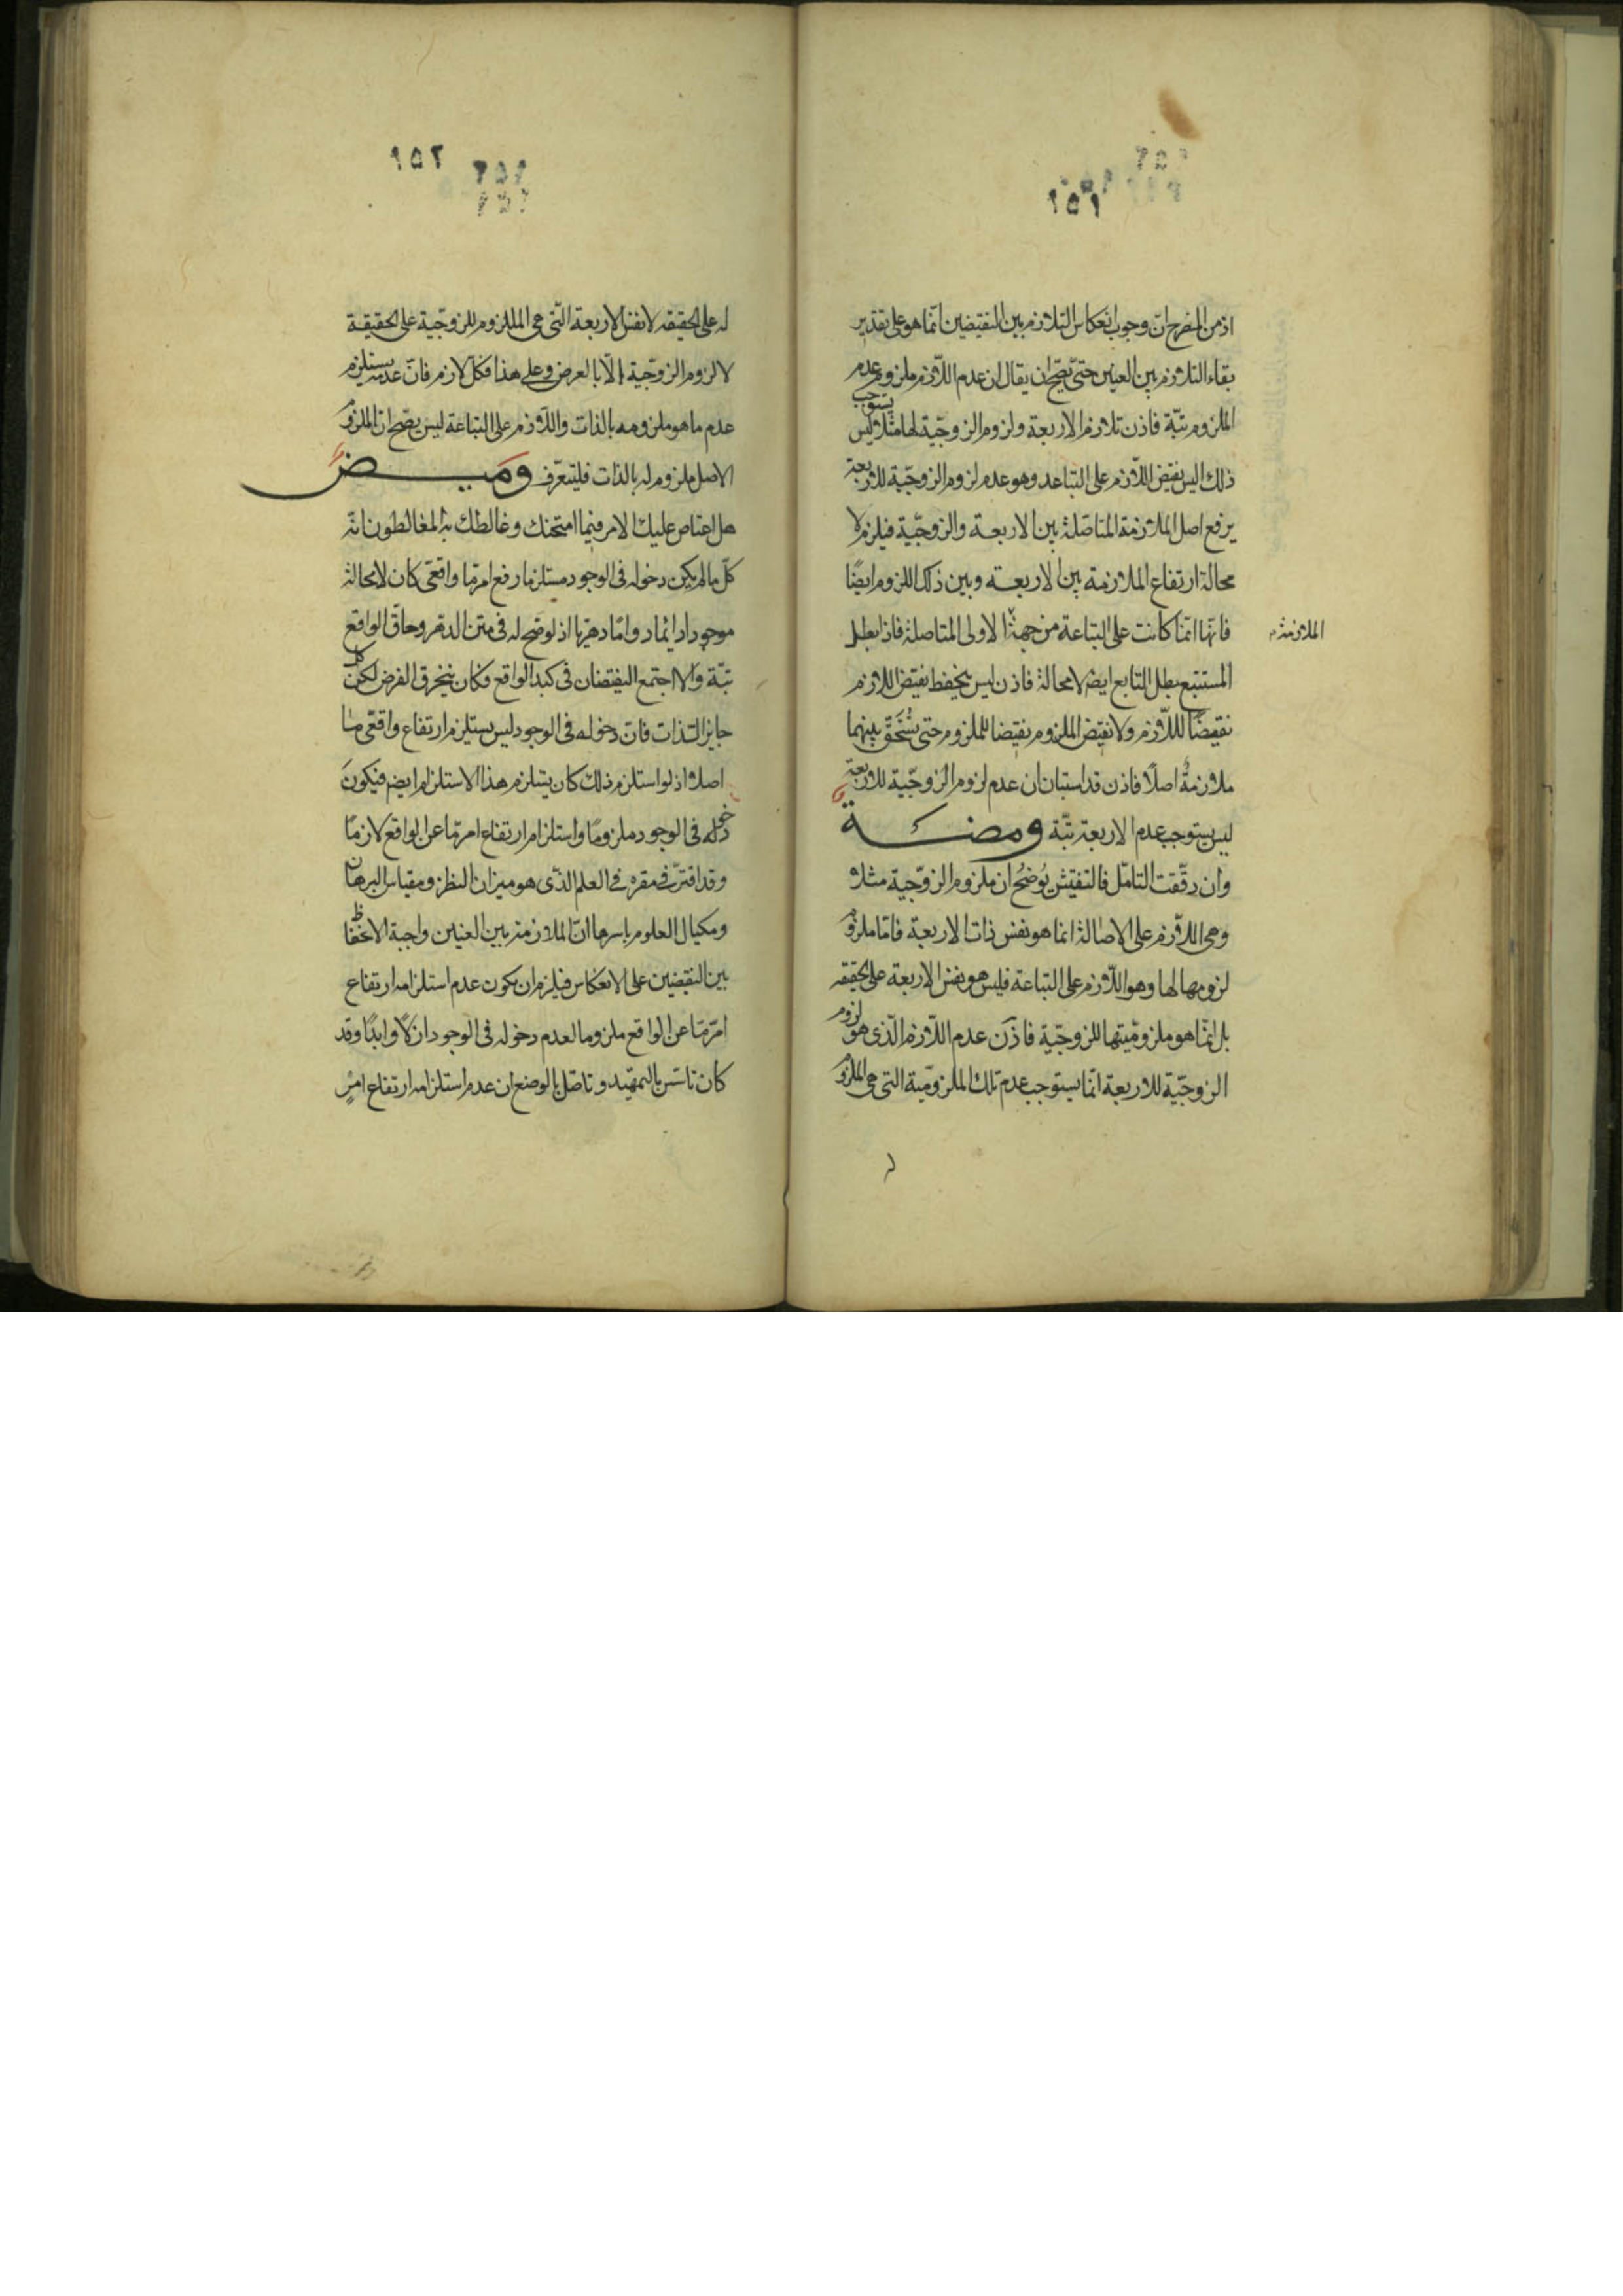 ٢٥١
اذ من المنصرح ان وجوب انعكاس التلازم بين النقيضين انّما هو على تقدير
بقاء التلازم بين العينين حتى يصحّ ان يقال ان عدم اللّازم ملزوم عدم
الملزوم بتّة فاذن تلازم الاربعة ولزوم الزوجيّة لها مثلا ليس يستوجب
ذلك اليس نقيض اللّازم على التباعد وهو عدم لزوم الزوجيّة للاربعة
يرفع اصل الملازمة المتاصّلة بين الاربعة والزوجيّة فيلزم لا
محالة ارتفاع الملازمة بين الاربعة وبين ذلك اللزوم ايضًا
فانّها انّما كانت على التباعة من جهة الاولى المتاصلة فاذا بطل
الملازمة
المستتبع بطل التابع ايضا لا محالة فاذن ليس ينحفظ نقيض اللازم
نقيضًا لللّازم ولا نقيض الملزوم نقيضا للملزوم حتى يستحقّ بينهما
ملازمةٌ اصلًا فاذن قد استبان ان عدم لزوم الزوجيّة للاربعة
ليس يستوجب عدم الاربعة بتّة ومضة
وان دقّقت التامّل فالتفتيش يُوضحُ ان ملزوم الزوجيّة مثلا
وهى اللّازم على الاصالة انما هو نفس ذات الاربعة فامّا ملزوم
لزومها لها وهو اللّازم على التباعة فليس هو نفس الاربعة على الحقيقه
بل انّما هو ملزوميّتها للزوجيّة فاذن عدم اللّازم الّذى هو لزوم
الزوجيّة للاربعة انّما يستوجب عدم تلك الملزوميّة التى هى الملزوم
له
٢٥٢
له على الحقيقه لا نفس الاربعة التّى هى الملزوم للزوجيّة على الحقيقة
لا لزوم الزوجيّة الّا بالعرض وعلى هذا فكلّ لازم فانّ عدمه يستلزم
عدم ما هو ملزومه بالذات واللّازم على التباعة ليس يصحّ ان الملزوم
الاصل ملزوم له بالذات فليتعرّف وَميـض
هل اعتاص عليك الامر فيما امتحنك وغالطك به المغالطون انّه
كلّ ما لم يكن دخوله فى الوجود مستلزما رفع امر مّا واقعىّ كان لا محالة
موجودا دائما وامّا دهريا اذ لوضح له فى متن الدهر وحاقّ الواقع
بتّة والّا اجتمع النقيضان فى كبد الواقع فكان ينخرق الفرض لكن كلّ
جايز الذات فانّ دخوله فى الوجود ليس يستلزم ارتفاع واقعىّ مّا
اصلا اذ لو استلزم ذلك كان يستلزم هذا الاستلزام ايضم فيكون
دخوله فى الوجود ملزومًا واستلزام ارتفاع امر مّا عن الواقع لازمًا
وقد اقترّ فى مقره فى العلم الذّى هو ميزان النظر ومقياس البرهان
ومكيال العلوم باسرها انّ الملازمة بين العينين واجبة الانحفاظ
بين النقيضين على الانعكاس فيلزم ان يكون عدم استلزامه ارتفاع
امر مّا عن الواقع ملزوما لعدم دخوله فى الوجود ازلًا وابدًا وقد
كان تاسّس بالتمهيد وتاصّل بالوضع ان عدم استلزامه ارتفاع امرٍ